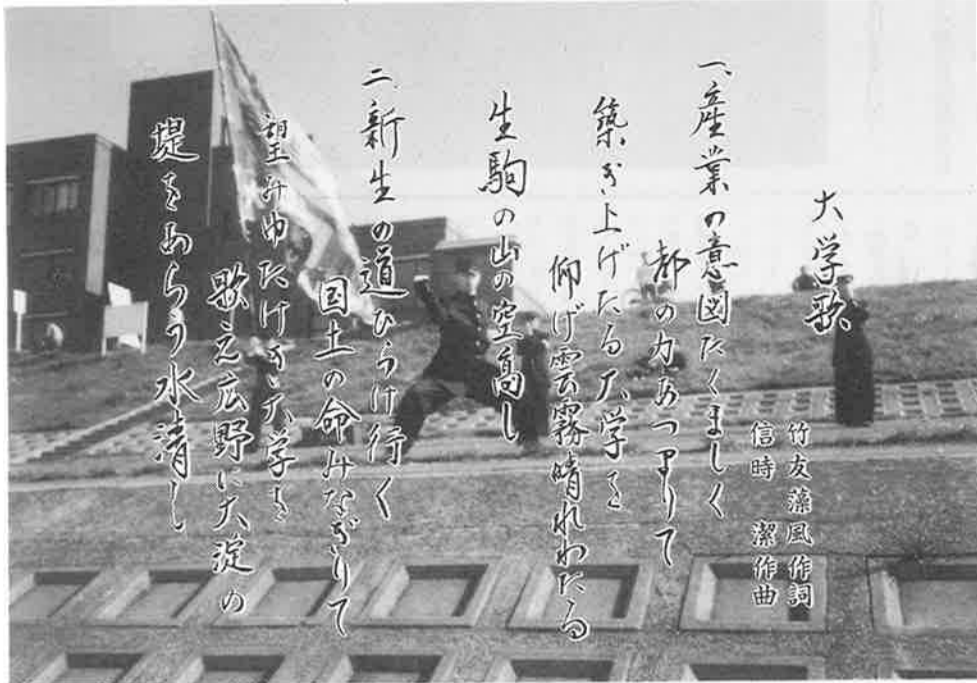 大学歌
竹友藻風作詞
信時 潔作曲
一、産業の意図たくましく
都の力あつまりて
築き上げたる大学を
仰げ雲霧晴れわたる
生駒の山の空高し
二、新生の道ひらけ行く
国土の命みなぎりて
望みゆたけき大学を
歌え広野に大淀の
堤をあらう水清し